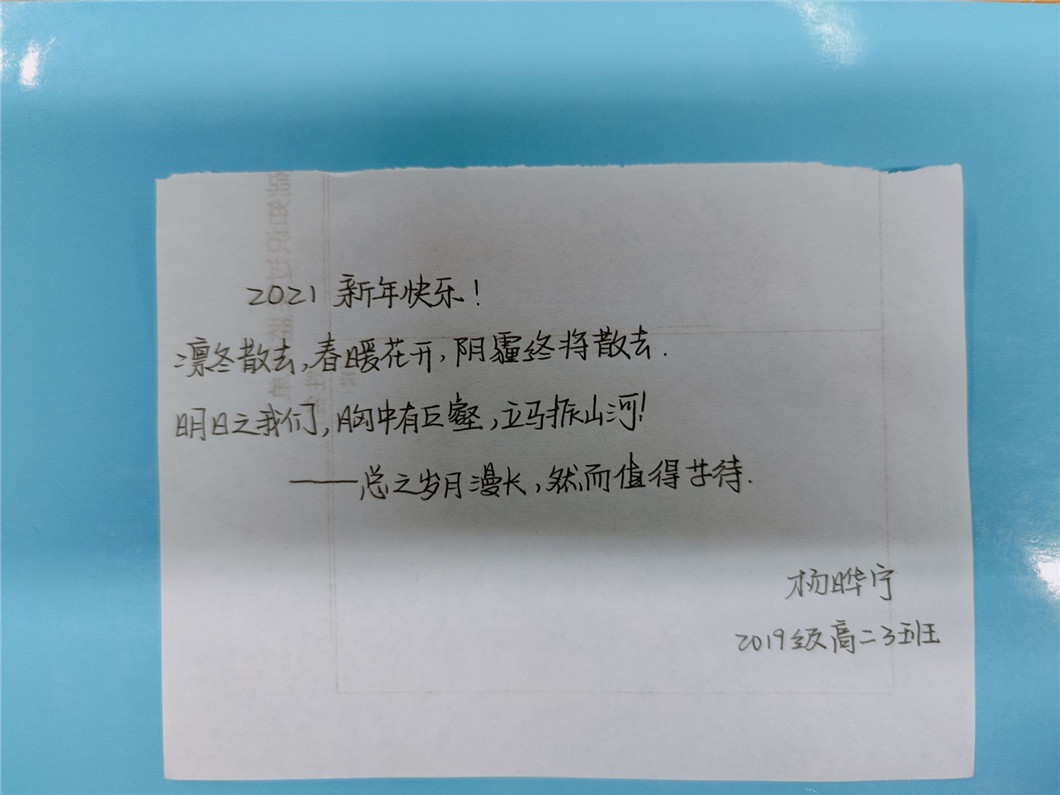 2021 新年快乐!
凛冬散去,春暖花开,阴霾终将散去.
明日之我们,胸中有丘壑,立马振山河!
——总之岁月漫长,然而值得等待.
杨晔宁
2019级高二3班